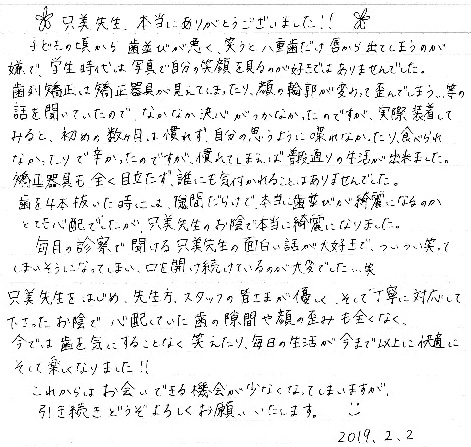 只美先生、本当にありがとうございました!!
子どもの頃から歯並びが悪く、笑うと八重歯だけ唇から出てしまうのが
嫌で、学生時代は写真で自分の笑顔を見るのが好きではありませんでした。
歯列矯正は矯正器具が見えてしまったり、顔の輪郭が変わって歪んでしまう…等の
話を聞いていたので、なかなか決心がつかなかったのですが、実際装着して
みると、初めの数ヵ月は慣れず自分の思うように喋れなかったり、食べられ
なかったりで辛かったのですが、慣れてしまえば普段通りの生活が出来ました。
矯正器具も全く目立たず、誰にも気付かれることはありませんでした。
歯を4本抜いた時には、隙間だらけで本当に歯並びが綺麗になるのか
とても心配でしたが、只美先生のお陰で本当に綺麗になりました。
毎月の診察で聞ける只美先生の面白い話が大好きで、ついつい笑って
しまいそうになってしまい、口を開け続けているのが大変でした…笑
只美先生をはじめ、先生方、スタッフの皆さまが優しく、そして丁寧に対応して
下さったお陰で心配していた歯の隙間や顔の歪みも全くなく、
今では歯を気にすることなく笑えたり、毎日の生活が今まで以上に快適に
そして楽しくなりました!!
これからはお会いできる機会が少なくなってしまいますが、
引き続きどうぞよろしくお願いいたします。
2019.2.2